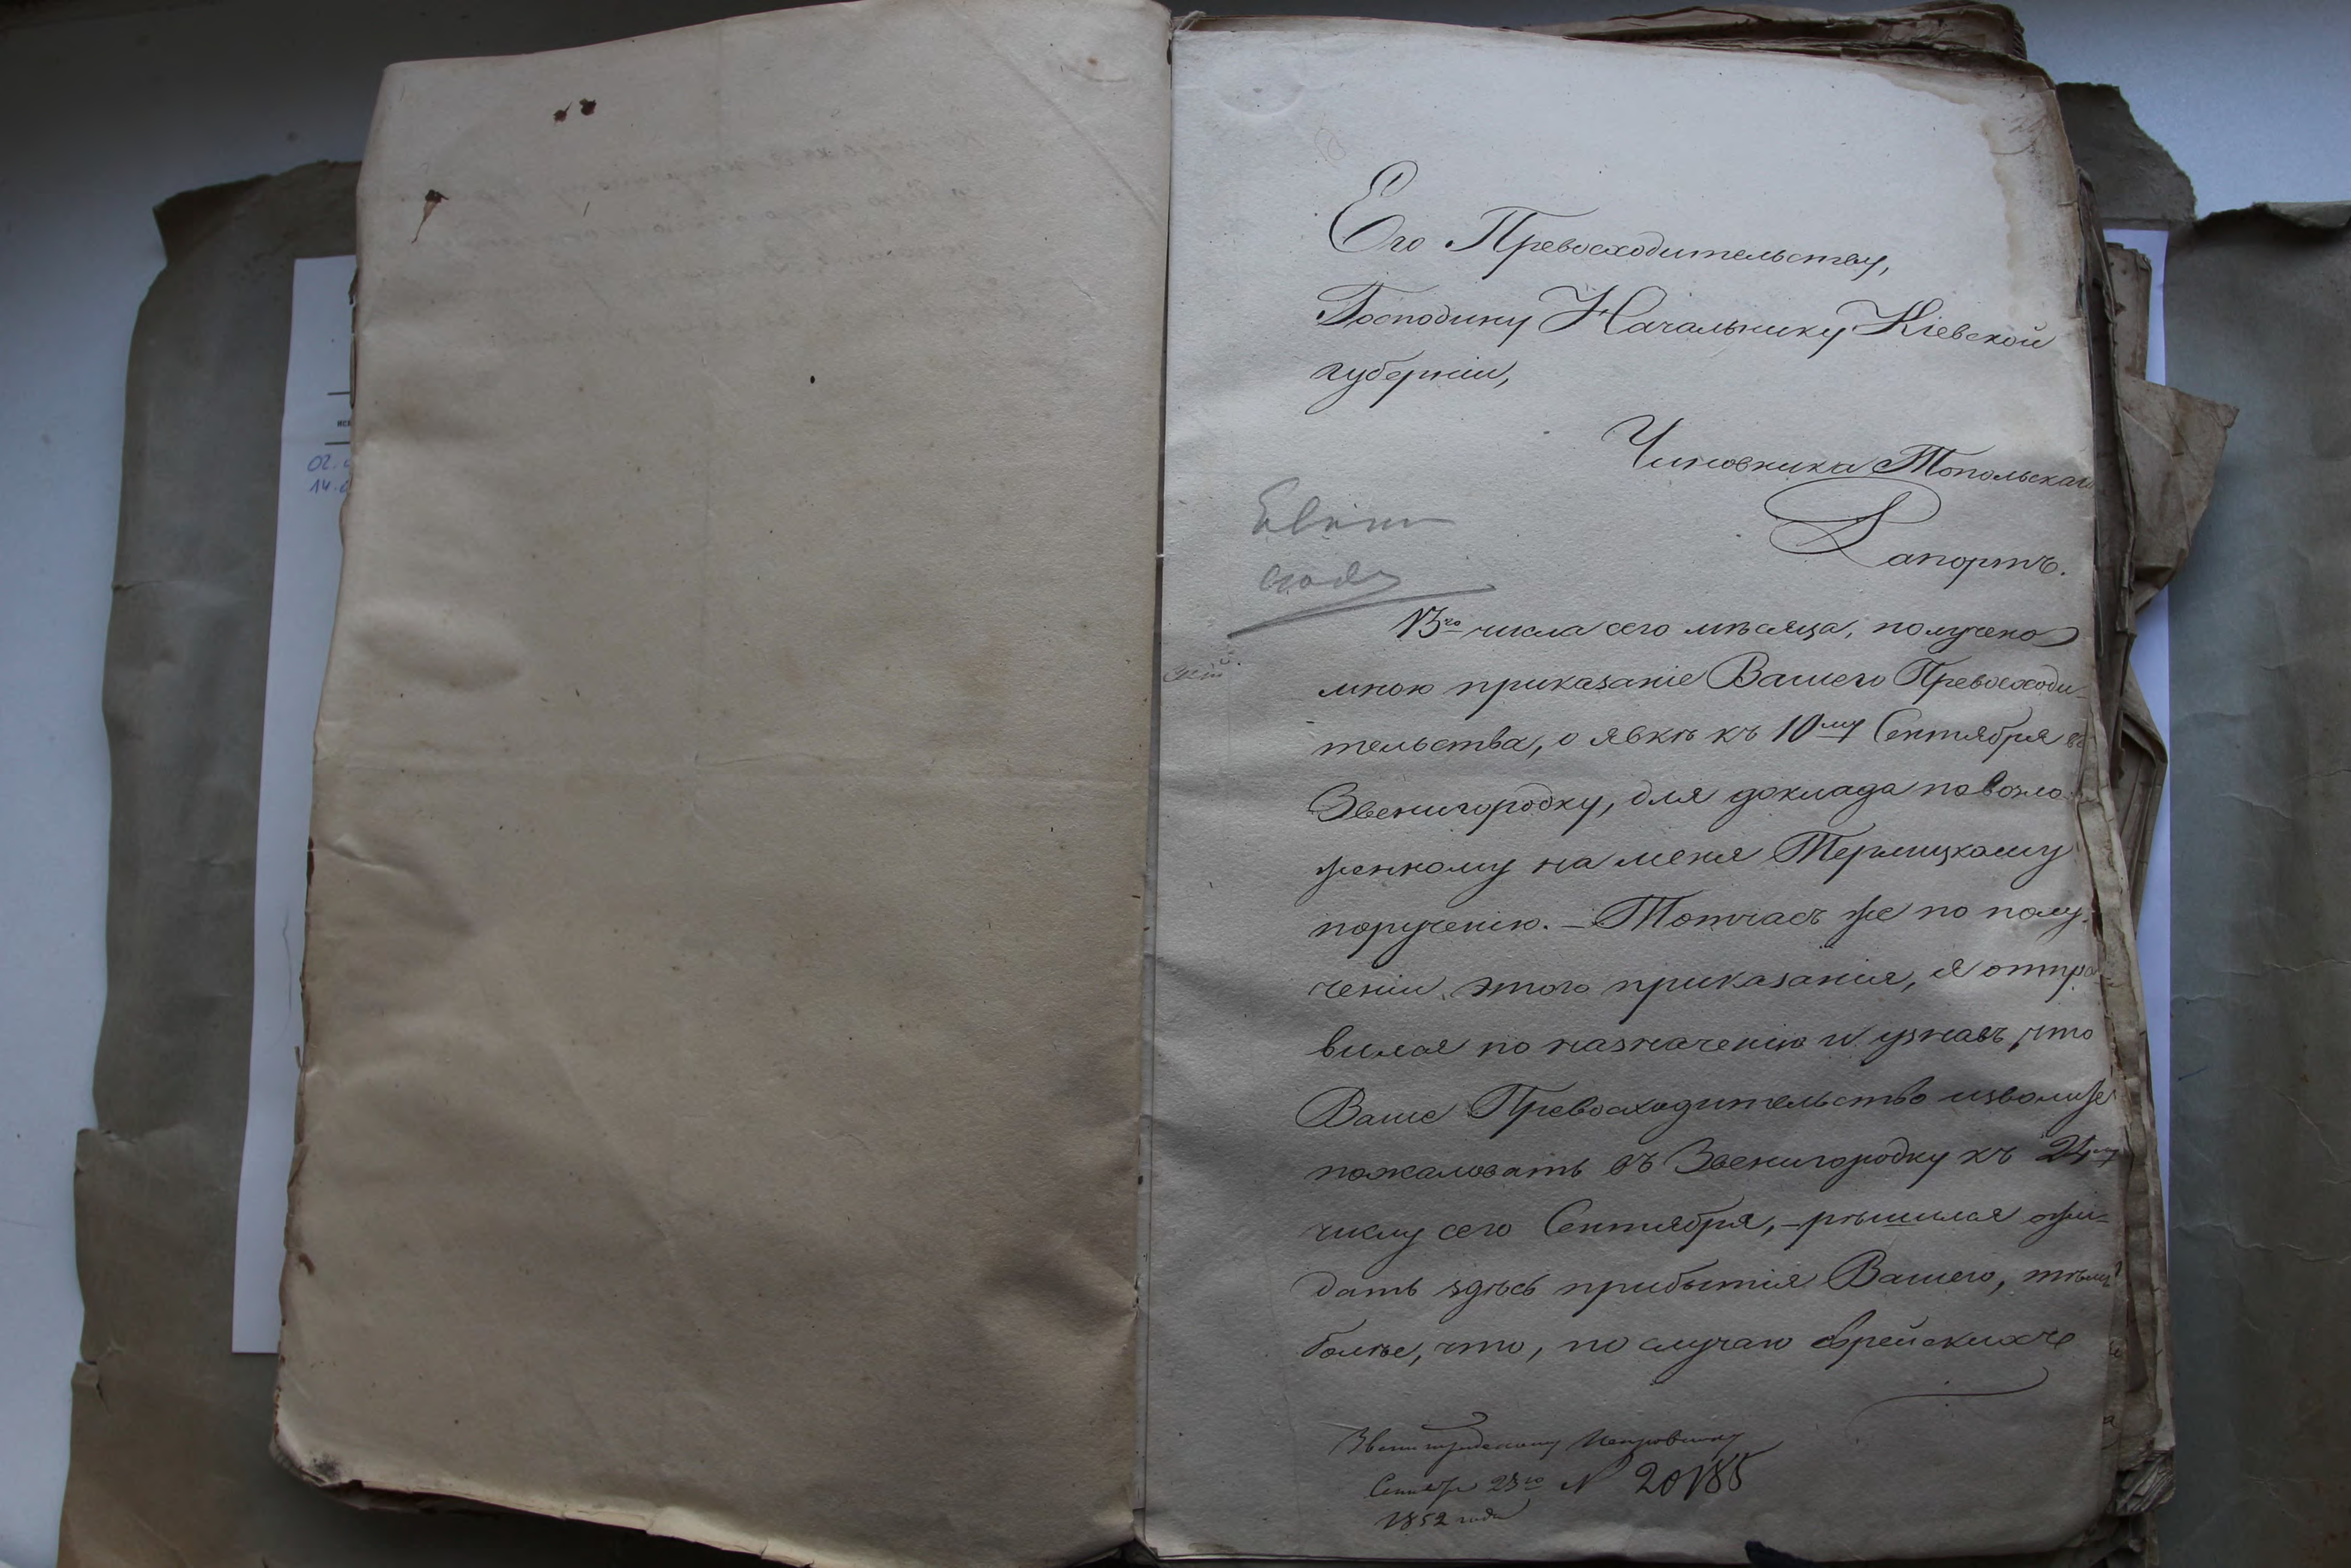 Его Превосходительству,
Господину Начальнику Кіевской
губерніи,
Чиновника Топольскаго
Рапортъ.
13го числа сего мѣсяца, получено
мною приказаніе Вашего Превосходи-
тельства, о явкѣ къ 10му Сентября въ
Звенигородку, для доклада по возло-
женному на меня
порученію. — Тотчасъ же по полу-
ченіи этого приказанія, я отпра-
вился по назначенію и узнавъ что
Ваше Превосходительство
пожаловать въ Звенигородку къ 24му
числу сего Сентября, — рѣшился ожи-
дать здѣсь прибытія Вашего, тѣмъ
болѣе, что, по случаю еврейскихъ
Звенигородскому Исправнику
№ 20185
1852 года
02.
14.